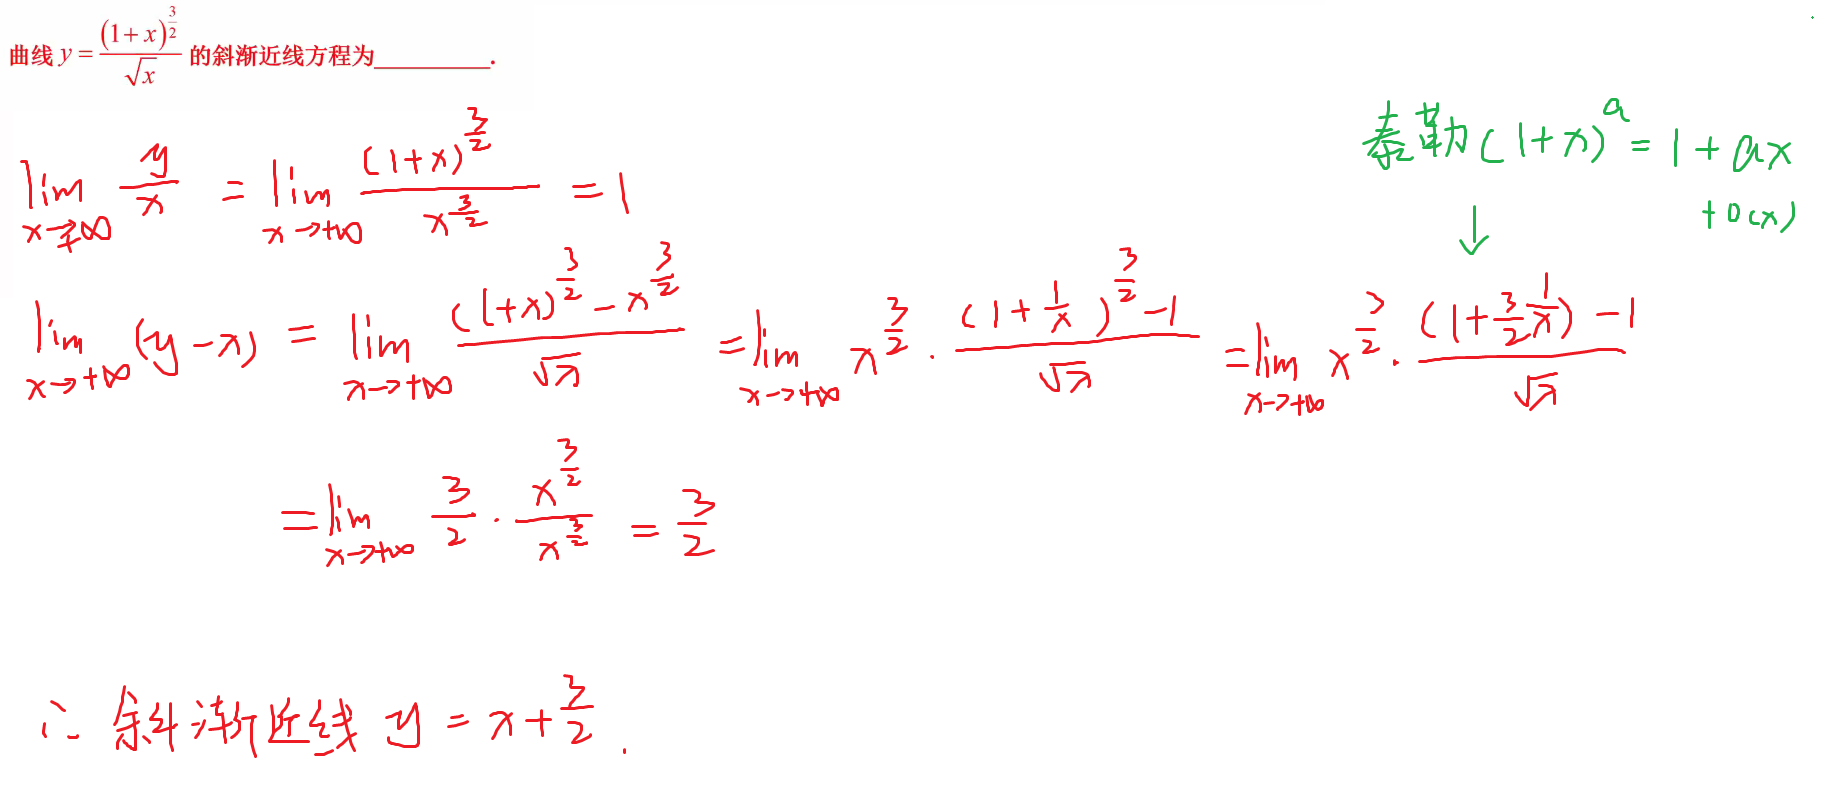 曲线 y = (1+x)^{3/2} / √x 的斜渐近线方程为________.
lim_{x→+∞} y/x = lim_{x→+∞} (1+x)^{3/2} / x^{3/2} = 1
泰勒 (1+x)^a = 1 + ax
+ o(x)
↓
lim_{x→+∞} (y-x) = lim_{x→+∞} ((1+x)^{3/2} - x^{3/2}) / √x = lim_{x→+∞} x^{3/2} · ((1+1/x)^{3/2} - 1) / √x = lim_{x→+∞} x^{3/2} · ((1+3/2 1/x) - 1) / √x
= lim_{x→+∞} 3/2 · x^{3/2} / x^{3/2} = 3/2
∴ 斜渐近线 y = x + 3/2.